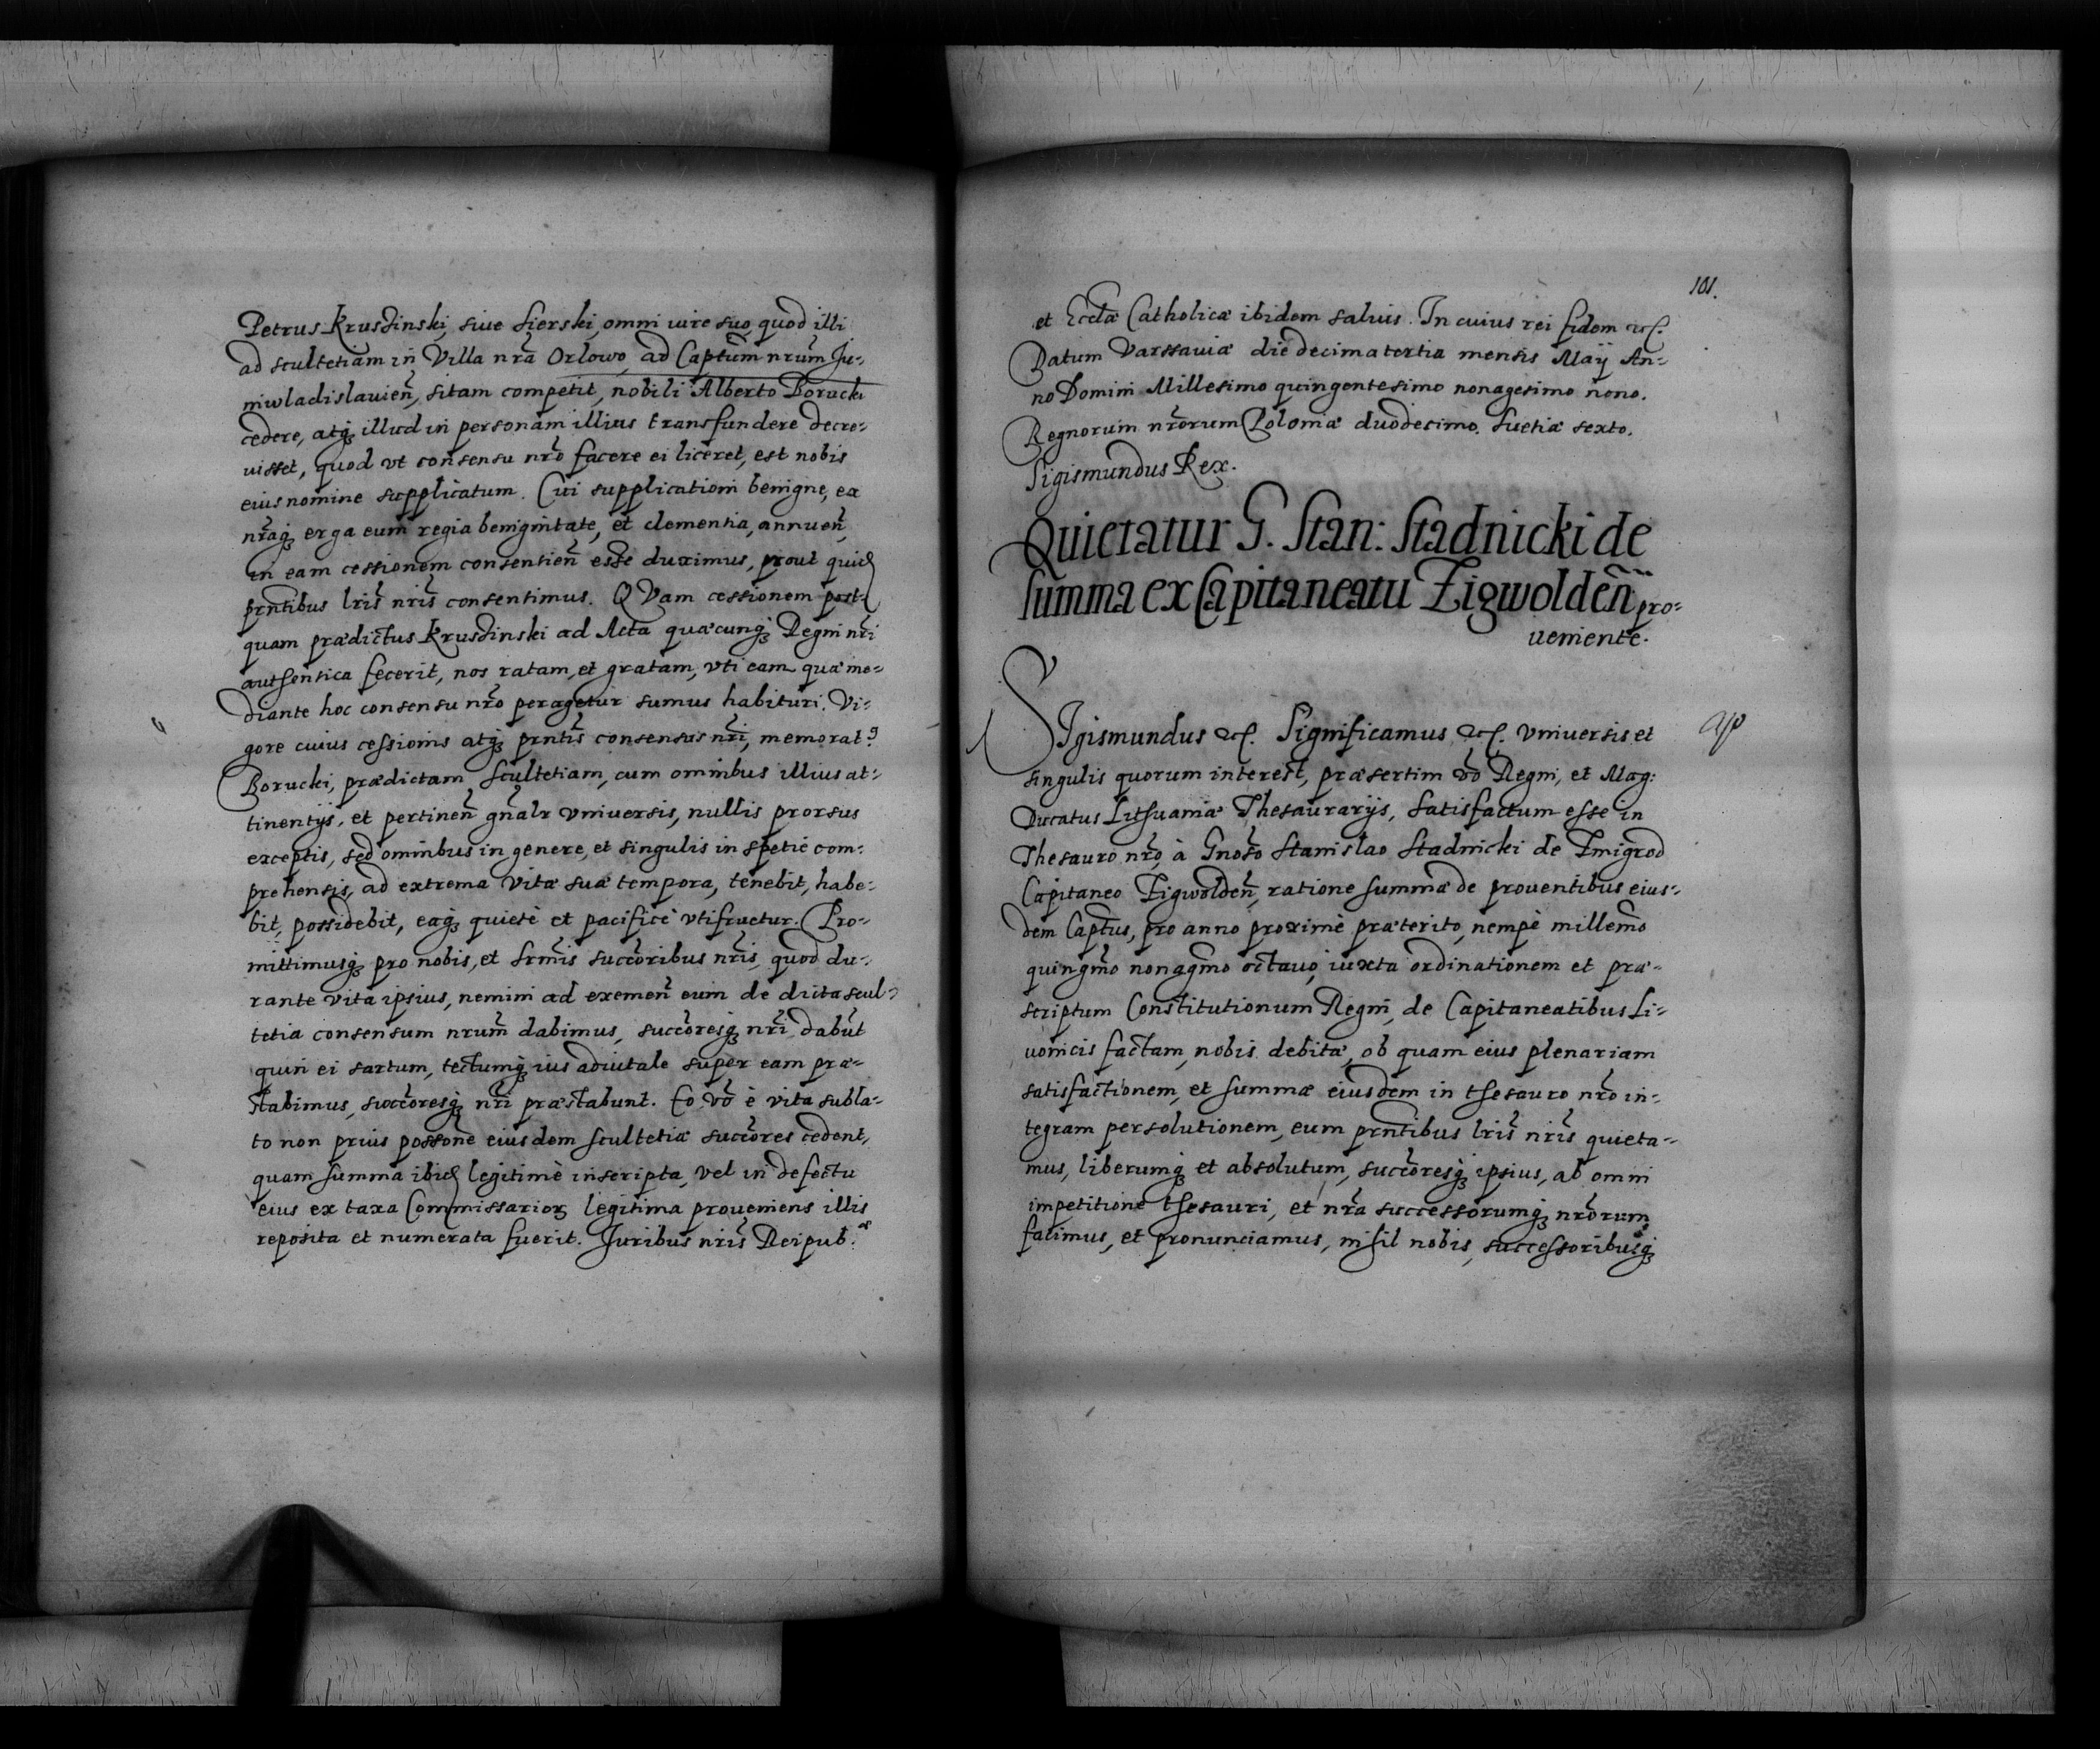 Petrus Krusdinski, siue sierski, omni iure suo, quod illi
ad scultetiam in Villa nrã Orlowo, ad Captum nrum Ju-
niwladislauien, sitam competit, nobili Alberto Borucki
cedere, atq illud in personam illius transfundere decre-
uisset, quod vt consensu nrõ facere ei liceret, est nobis
eius nomine supplicatum. Cui supplicationi benigne, ex
nrãq erga eum regia benignitate, et clementia, annuen,
in eam cessionem consentien esse duximus, prout quid
prntibus lris nris consentimus. QVam cessionem post-
quam prædictus Krusdinski ad Acta quæcunq Regni nri
authentica fecerit, nos ratam, et gratam, vti eam quæ me-
diante hoc consensu nrõ peragetur sumus habituri. Vi-
gore cuius cessionis atq prntis consensus nri, memorat9
Borucki, prædictam scultetiam, cum omnibus illius at-
tinentijs, et pertinen gnalr vniuersis, nullis prorsus
exceptis, sed omnibus in genere, et singulis in spetie com-
prehensis, ad extrema vitæ suæ tempora, tenebit, habe-
bit, possidebit, eaq quietè et pacificè vtifruetur. Pro-
mittimusq pro nobis, et srmis succoribus nris, quod du-
rante vita ipsius, nemini ad exemen eum de dicta scul-
tetia consensum nrum dabimus, succoresq nri dabut
quin ei sartum, tectumq ius aduitale super eam præ-
stabimus, succoresq nri præstabunt. Eo võ è vita subla-
to non prius possone eiusdem scultetiæ succores cedent,
quam summa ibid legitimè inscripta, vel in defectu
eius ex taxa Commissarior legitima proueniens illis
reposita et numerata fuerit. Iuribus nris Reipub. æ
101.
et Ecclæ Catholicæ ibidem saluis. In cuius rei fidem etc.
Datum Varssauiæ die decima tertia mensis Maij An-
no Domini Millesimo quingentesimo nonagesimo nono.
Regnorum nrorum Poloniæ duodecimo. Suetiæ sexto.
Sigismundus Rex.
Quietatur G. Stan: Stadnicki de
summa ex Capitaneatu Zigwolden pro-
ueniente.
SIgismundus etc. Significamus etc. vniuersis et
singulis quorum interest, præsertim võ Regni, et Mag:
Ducatus Lithuaniæ Thesaurarijs, satisfactum esse in
Thesauro nrõ, à Gnoso Stanislao Stadnicki de Zmigrod
Capitaneo Zigwolden, ratione summæ de prouentibus eius-
dem Captus, pro anno proximè præterito, nempè millemo
quingmo nonagmo octauo, iuxta ordinationem et præ-
scriptum Constitutionum Regni, de Capitaneatibus Li-
uonicis factam, nobis debitæ, ob quam eius plenariam
satisfactionem, et summæ eiusdem in thesauro nrõ in-
tegram persolutionem, eum prntibus lris nris quieta-
mus, liberumq et absolutum, succoresq ipsius, ab omni
impetitione thesauri, et nrã successorumq nrorum
facimus, et pronunciamus, nihil nobis, successoribusq